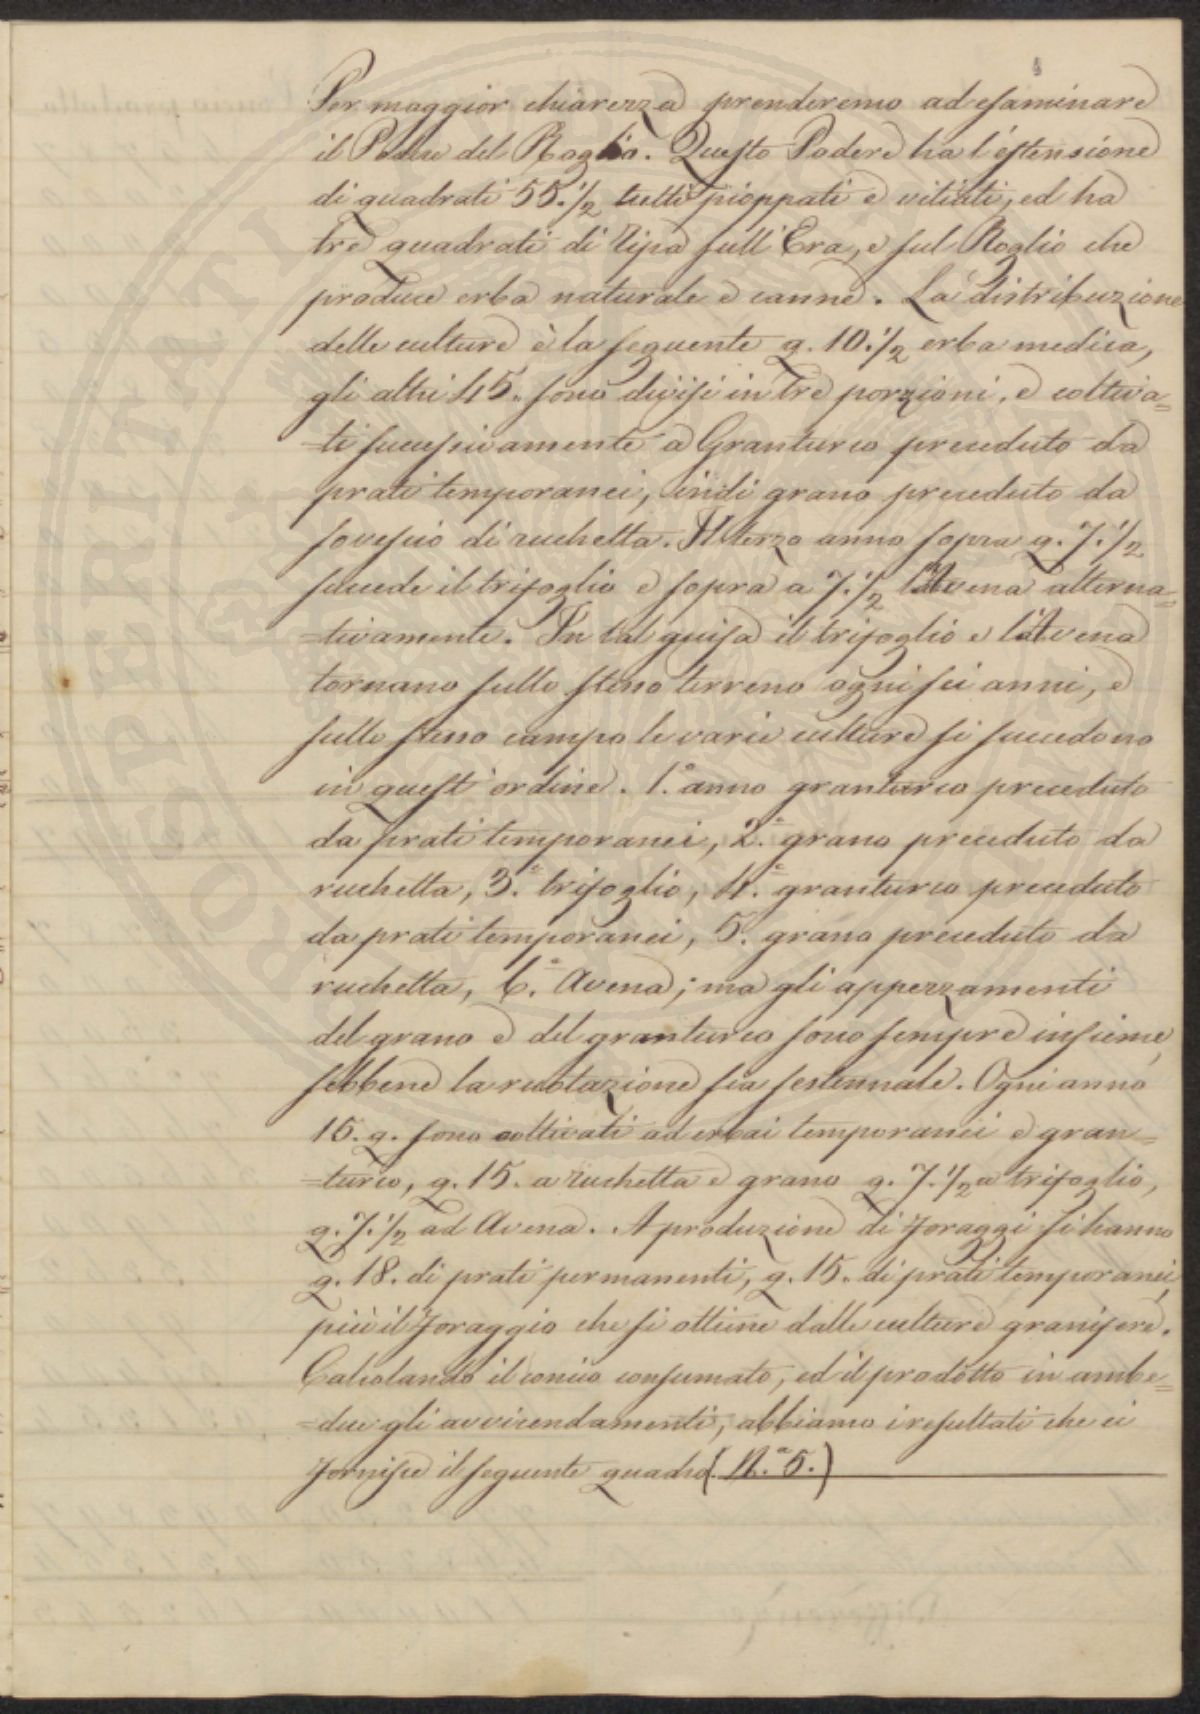 Per maggior chiarezza prenderemo ad esaminare
il Podere del Roglio. Questo Podere ha l'estensione
di quadrati 55.½ tutti pioppati e vitiati, ed ha
tre quadrati di ripa sull'Era, e sul Roglio che
produce erba naturale e canne. La distribuzione
delle culture è la seguente q. 10.½ erba medica,
gli altri 45. sono divisi in tre porzioni, e coltiva=
=ti successivamente a Granturco preceduto da
prati temporanei, indi grano preceduto da
sovescio di ruchetta. Il terzo anno sopra q. 7.½
succede il trifoglio e sopra a 7.½ l'Avena alterna=
=tivamente. In tal guisa il trifoglio e l'Avena
tornano sullo stesso terreno ogni sei anni, e
sullo stesso campo le varie culture si succedono
in quest'ordine. 1.° anno granturco preceduto
da prati temporanei, 2.° grano preceduto da
ruchetta, 3.° trifoglio, 4.° granturco preceduto
da prati temporanei, 5. grano preceduto da
ruchetta, 6.° Avena; ma gli appezzamenti
del grano e del granturco sono sempre insieme,
sebbene la ruotazione sia sessennale. Ogni anno
15. q. sono coltivati ad erbai temporanei e gran=
=turco, q. 15. a ruchetta e grano q. 7.½ a trifoglio,
q. 7.½ ad Avena. A produzione di foraggi si hanno
q. 18. di prati permanenti, q. 15. di prati temporanei,
più il foraggio che si ottiene dalle culture granifere.
Calcolando il concio consumato, ed il prodotto in ambe=
=due gli avvicendamenti, abbiamo i resultati che ci
fornisce il seguente quadro (N.° 5.)
PROSPERITATI